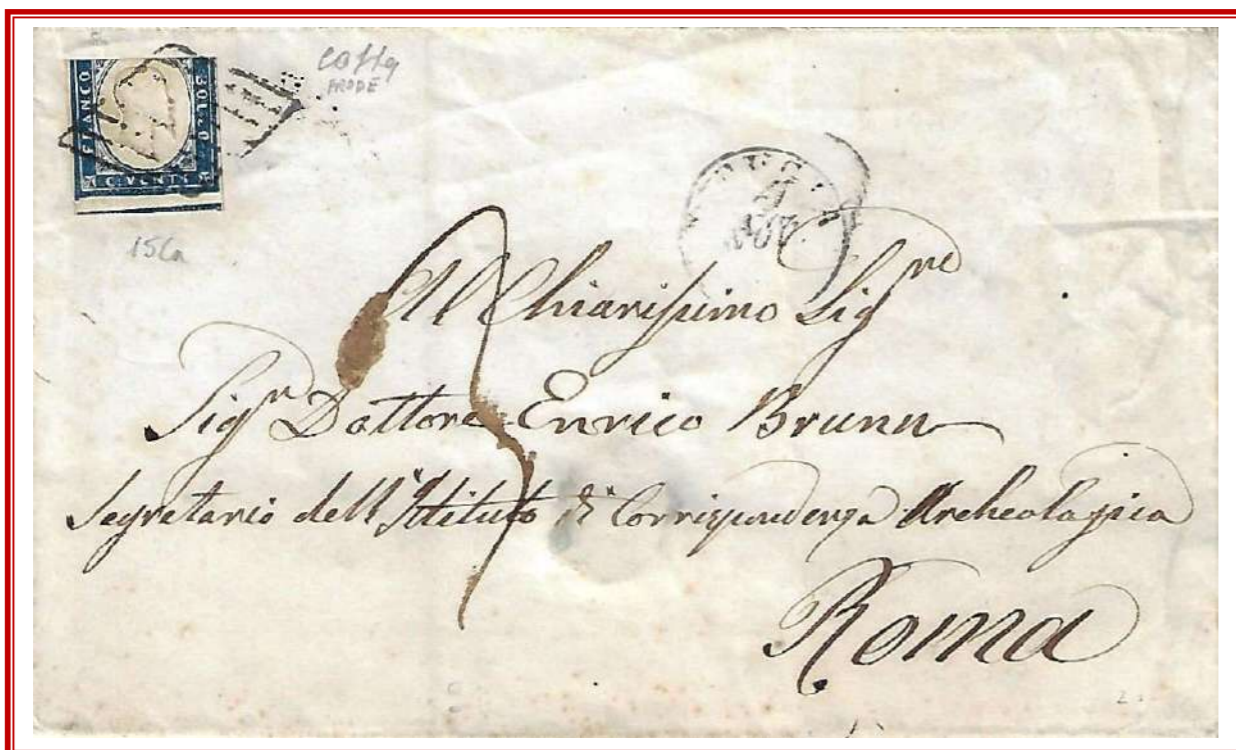 FRANCO
BOLLO
C. VENTI
15Ca
Al Chiarissimo Sig.re
Sig.r Dottore Enrico Brunn
Segretario dell'Istituto di Corrispondenza Archeologica
Roma